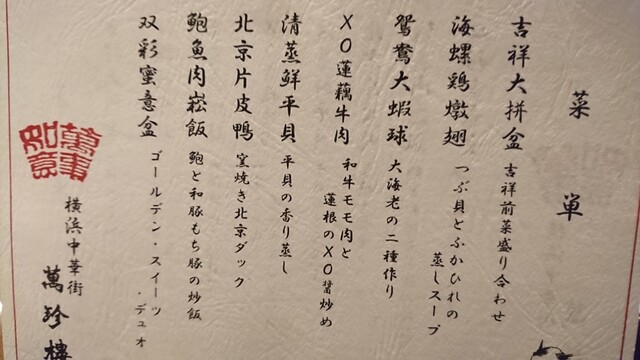 菜単
吉祥大拼盆 吉祥前菜盛り合わせ
海螺鶏燉翅 つぶ貝とふかひれの
蒸しスープ
鴛鴦大蝦球 大海老の二種作り
XO蓮藕牛肉 和牛モモ肉と
蓮根のXO醤炒め
清蒸鮮平貝 平貝の香り蒸し
北京片皮鴨 窯焼き北京ダック
鮑魚肉崧飯 鮑と和豚もち豚の炒飯
双彩蜜意盆 ゴールデン・スイーツ
・デュオ
萬事如意
横浜中華街
萬珍樓